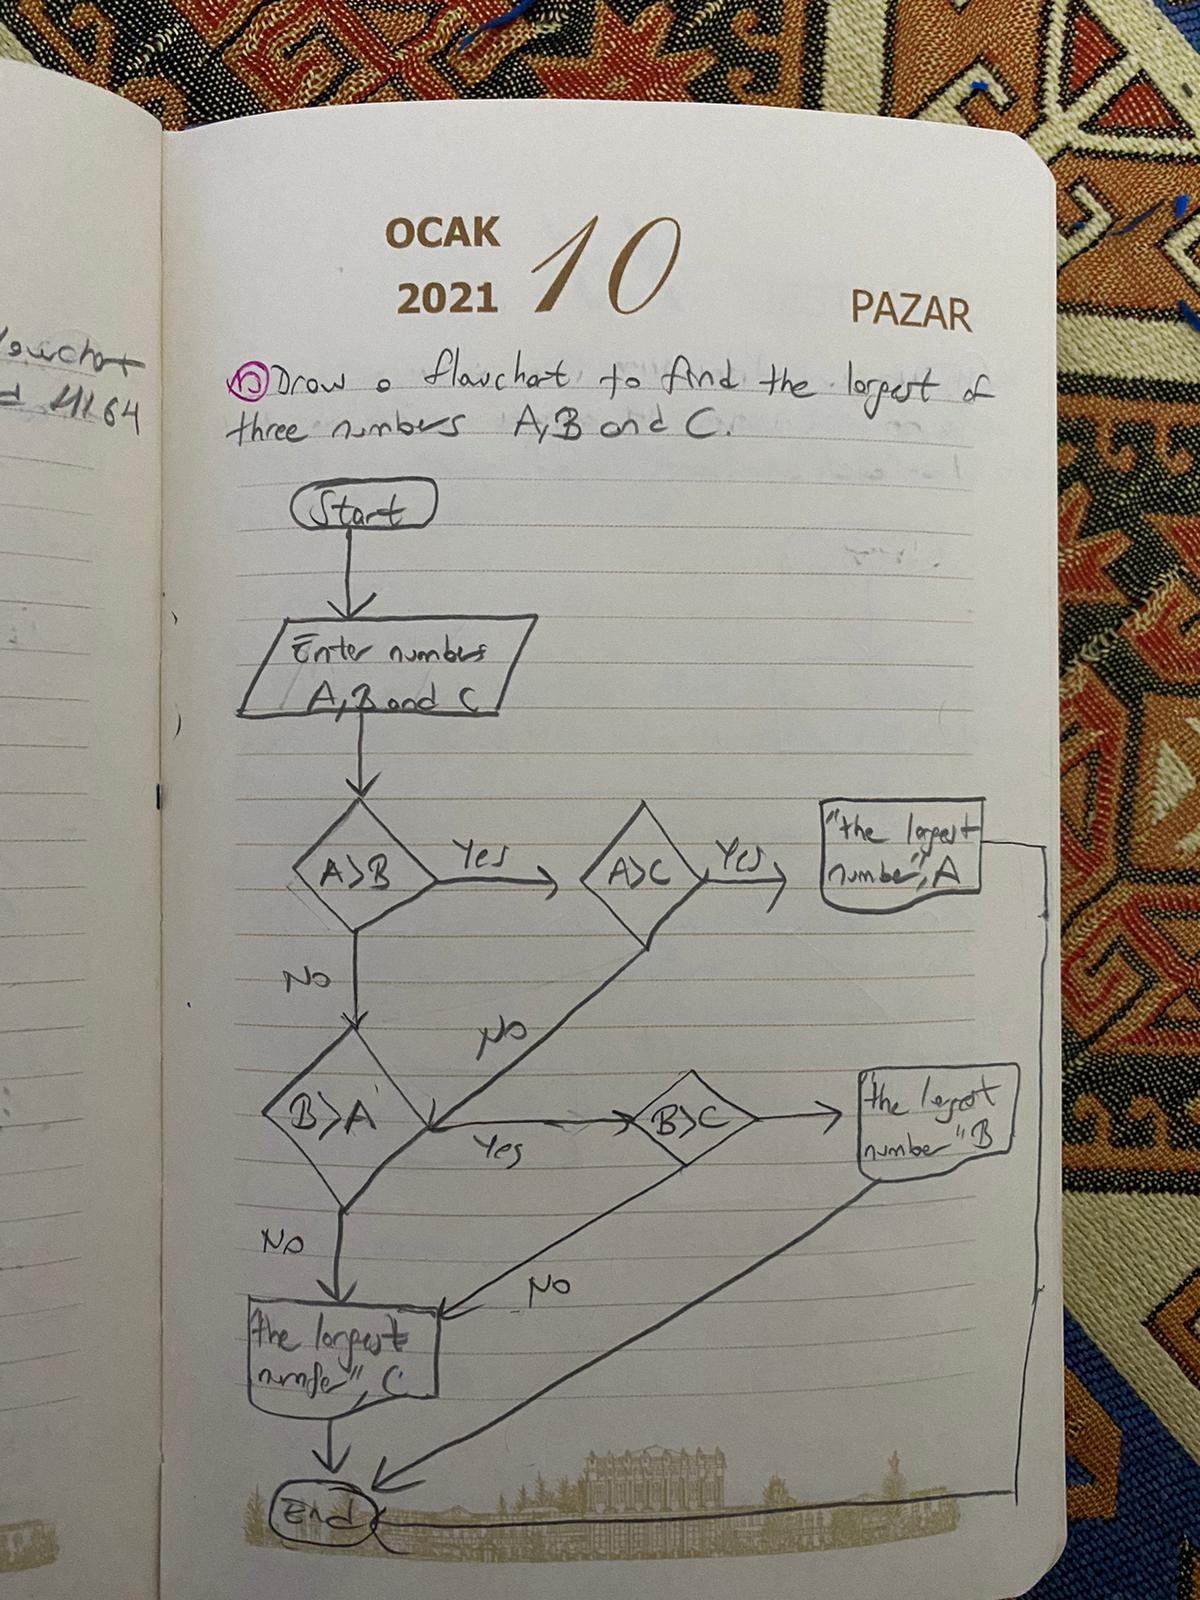 lowchart
d 4164
OCAK
2021
10
PAZAR
Draw a flawchart to find the largest of
three numbers A,B and C.
Start
Enter numbers
A,B and C
A>B
Yes
A>C
Yes
"the largest
number", A
No
No
B>A
Yes
B>C
"the largest
number" B
No
No
the largest
number", C
End